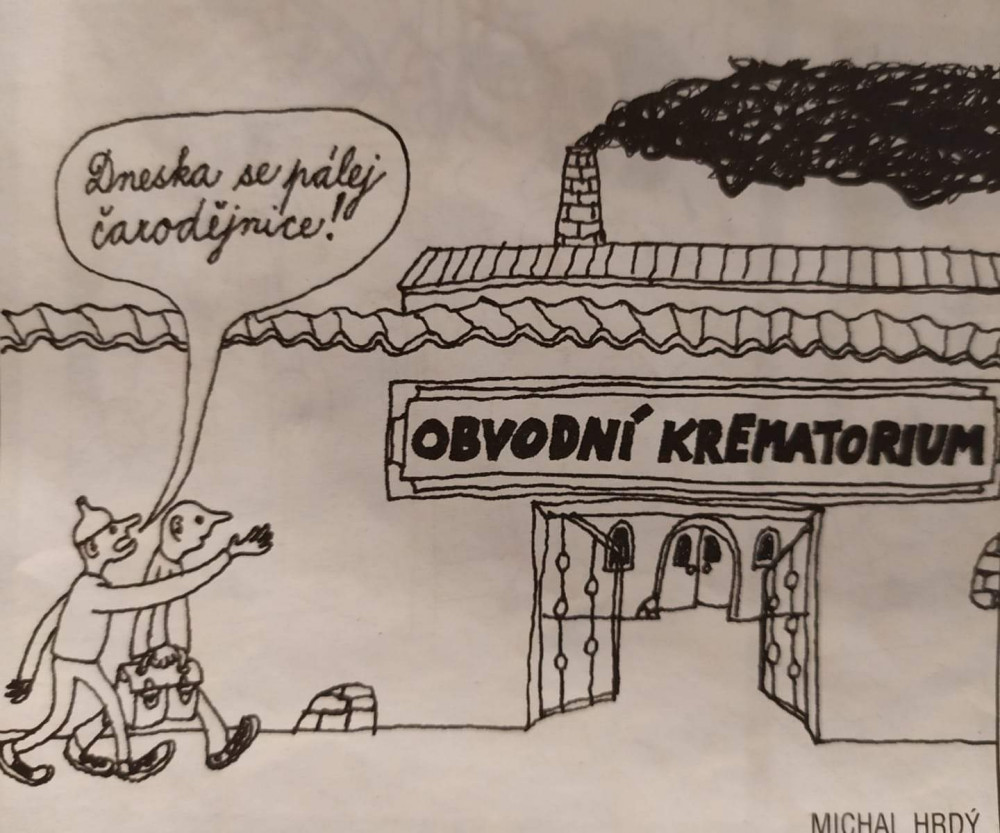 Dneska se pálej
čarodějnice!
OBVODNÍ KREMATORIUM
MICHAL HRDÝ